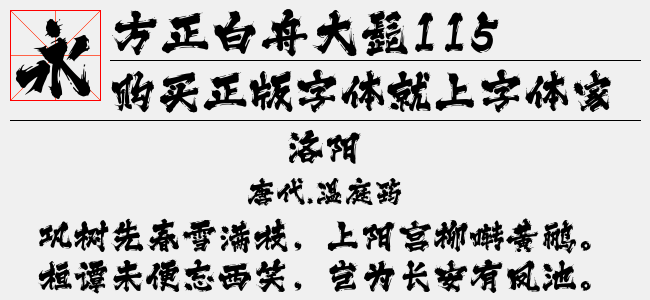 永
方正白舟大髭115
购买正版字体就上字体家
洛阳
唐代.温庭筠
巩树先春雪满枝，上阳宫柳啭黄鹂。
桓谭未便忘西笑，岂为长安有凤池。